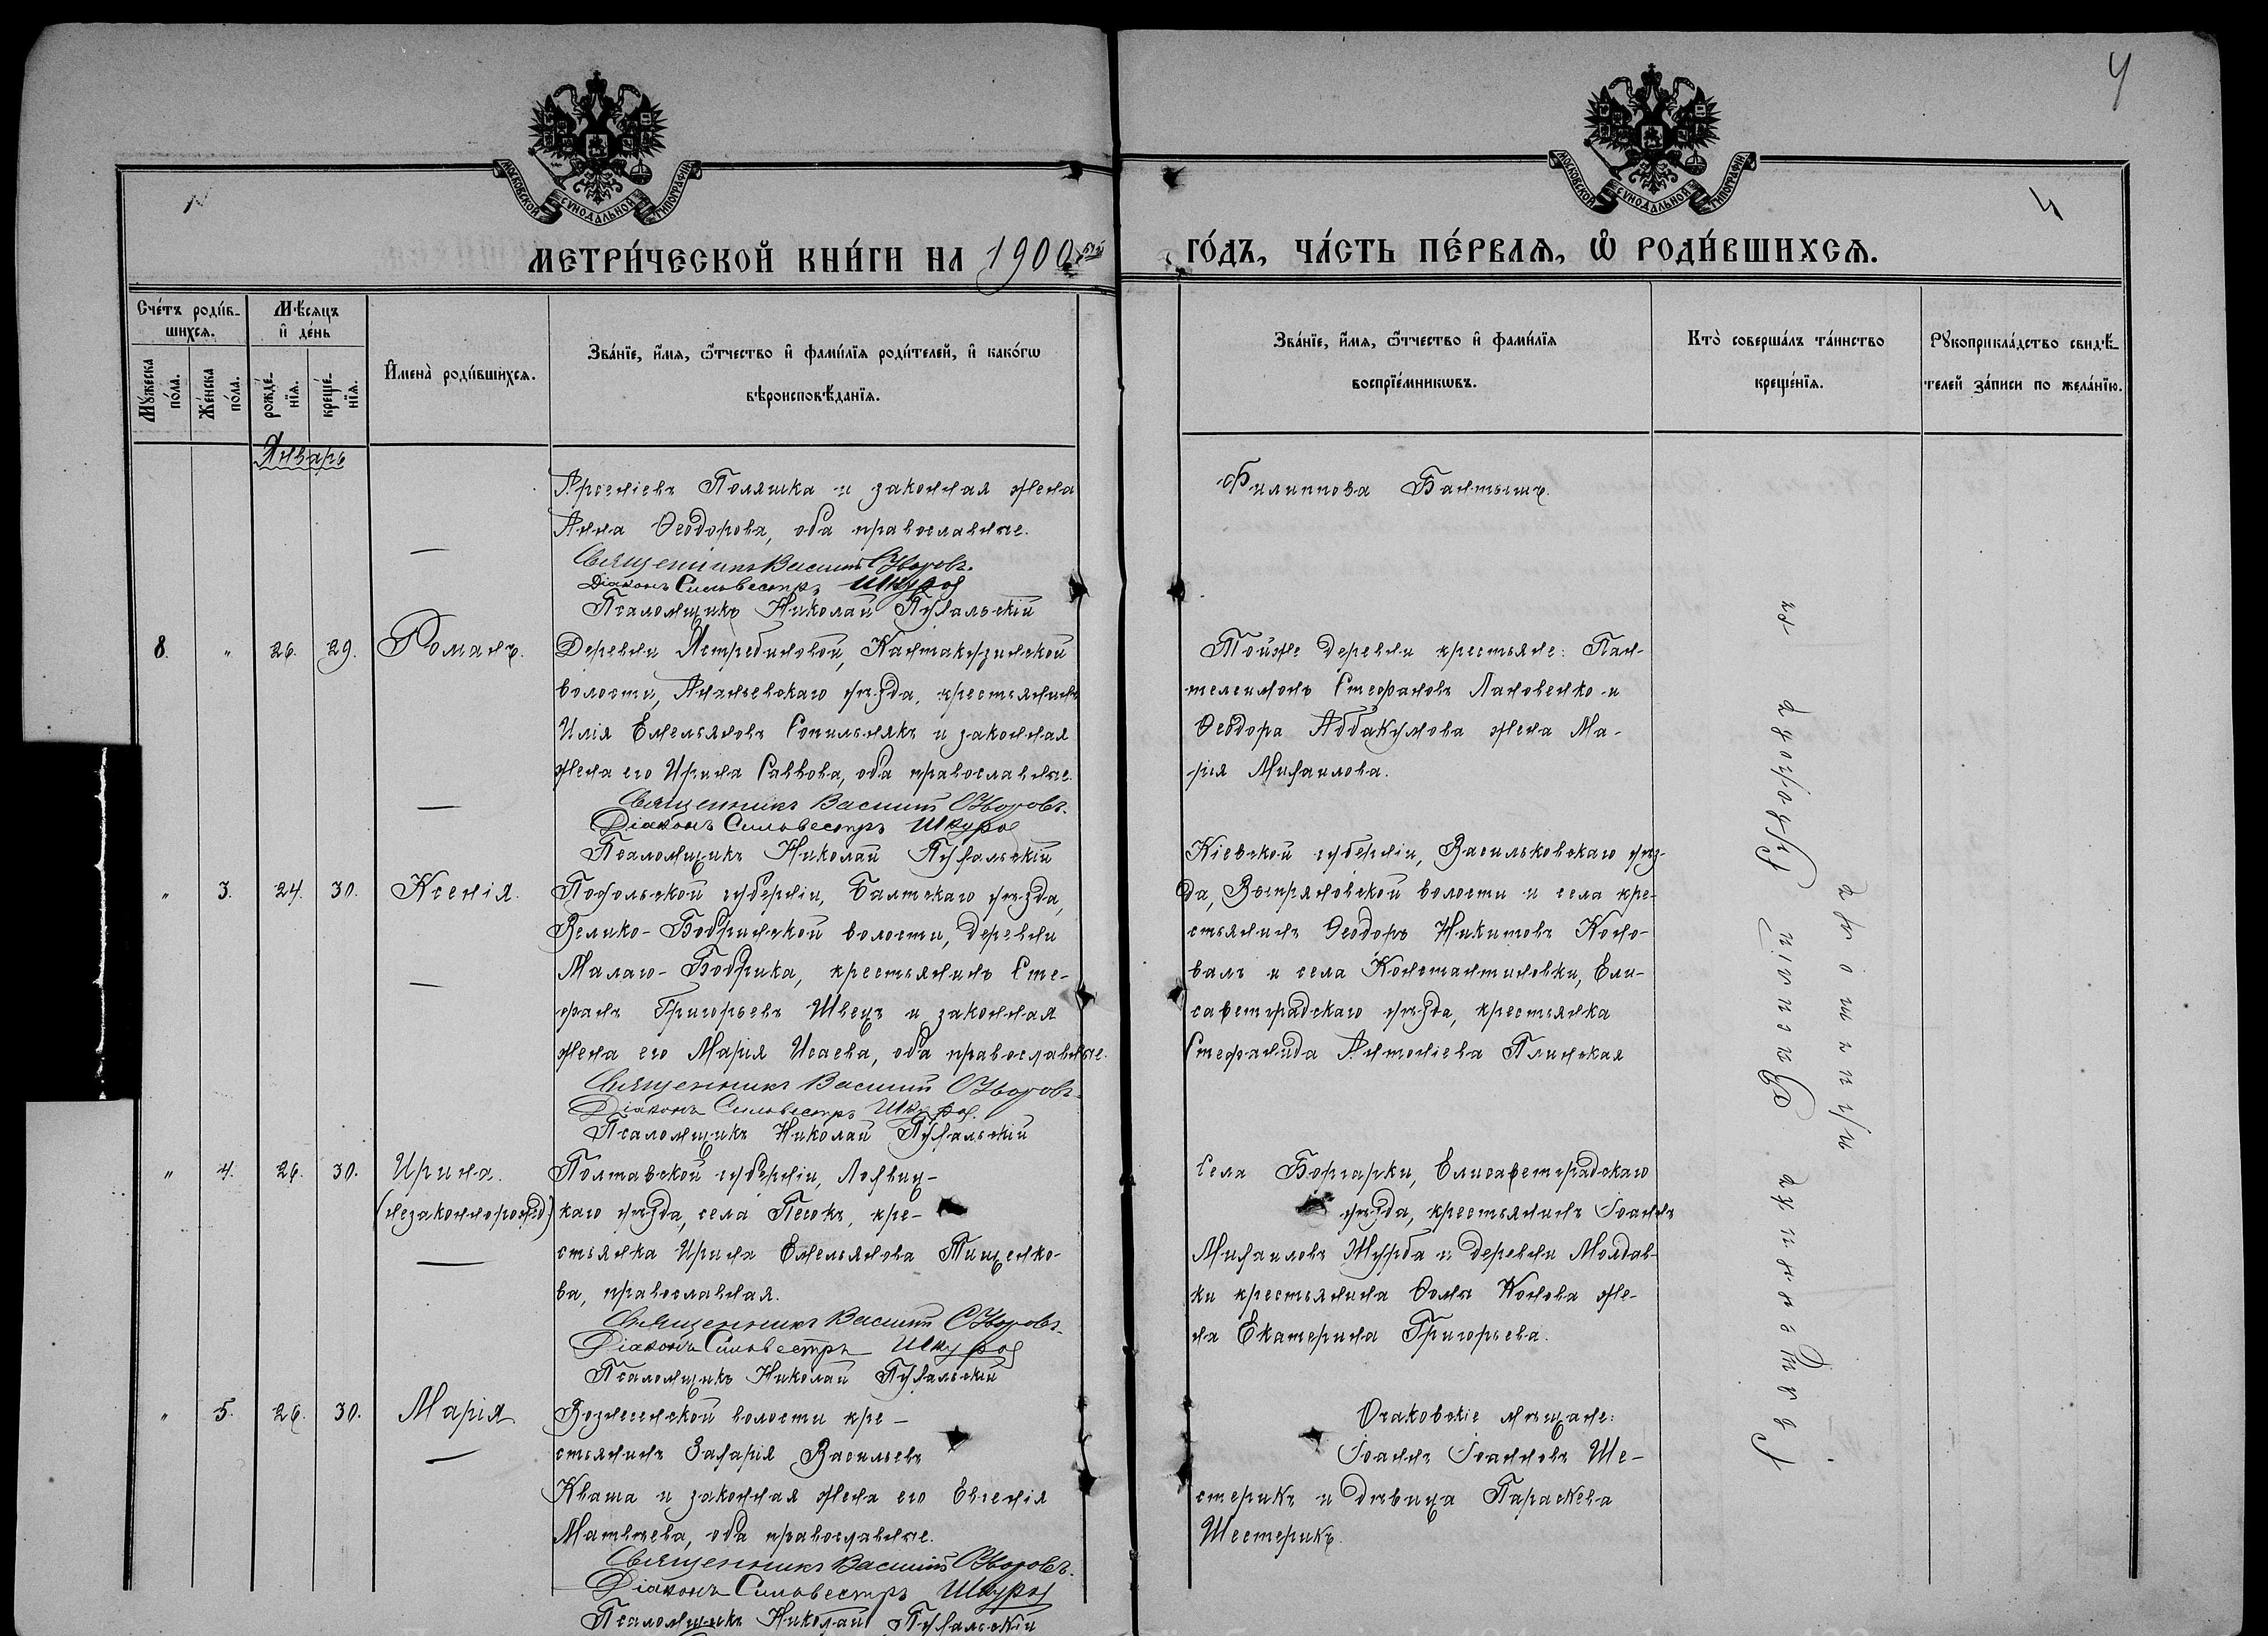 4
МОСКОВСКОЙ СѴНОДАЛЬНОЙ ТИПОГРАФІИ
МОСКОВСКОЙ СѴНОДАЛЬНОЙ ТИПОГРАФІИ
4
МЕТРИ́ЧЕСКОЙ КНИ́ГИ НА 1900
ГО́ДЪ, ЧА́СТЬ ПЕ́РВАѦ, Ѡ҆ РОДИ́ВШИХСѦ.
Сче́тъ роди́в-
шихсѧ.
Мѣ́сѧцъ
и҆ де́нь
Мꙋ́жеска
по́ла.
Же́нска
по́ла.
рожде́-
нїѧ.
креще́-
нїѧ.
И҆мена̀ роди́вшихсѧ.
Зва́нїе, и҆́мѧ, ѻ҆́тчество и҆ фами́лїѧ роди́телей, и҆ како́гѡ
вѣроисповѣ́данїѧ.
Зва́нїе, и҆́мѧ, ѻ҆́тчество и҆ фами́лїѧ
воспрїе́мникѡвъ.
Кто̀ соверша́лъ та́инство
креще́нїѧ.
Рꙋкоприкла́дство свидѣ́-
телей за́писи по жела́нїю.
Январь
Арсеніевъ Поляшка и законная жена
Анна Ѳеодорова, оба православные.
Священникъ Василій
Діаконъ Сильвестръ
Псаломщикъ Николай
Филиппова
8. " 26. 29. Романъ.
Деревни Ястребиновой, Кантакузинской
волости, Ананьевскаго уѣзда, крестьянинъ
Илія Емельяновъ Сопильнякъ и законная
жена его Ирина Саввова, оба православные.
Священникъ Василій
Діаконъ Сильвестръ
Псаломщикъ Николай
Тойже деревни крестьяне: Пан-
телеимонъ Стефановъ Лановенко и
Ѳеодора Аввакумова жена Ма-
рія Михаилова.
" 3. 24. 30. Ксенія.
Подольской губерніи, Балтскаго уѣзда,
Велико-Бобринской волости, деревни
Малаго-Бобрика, крестьянинъ Сте-
фанъ Григорьевъ Швецъ и законная
жена его Марія Исаева, оба православные.
Священникъ Василій
Діаконъ Сильвестръ
Псаломщикъ Николай
Кіевской губерніи, Васильковскаго уѣз-
да, волости и села кре-
стьянинъ Ѳеодоръ Никитовъ Коно-
валъ и села Константиновки, Ели-
саветградскаго уѣзда, крестьянка
Стефанида Антоніева Глинская
" 4. 26. 30. Ирина.
(незаконнорожд)
Полтавской губерніи, Лохвиц-
каго уѣзда, села Песокъ, кре-
стьянка Ирина Емельянова Тищенко-
ва, православная.
Священникъ Василій
Діаконъ Сильвестръ
Псаломщикъ Николай
Села Болгарки, Елисаветградскаго
уѣзда, крестьянинъ Іоаннъ
Михаиловъ Журба и деревни Молдав-
ки крестьянина Ѳомы Конова же-
на Екатерина Григорьева.
" 5. 26. 30. Марія
Вознесенской волости кре-
стьянинъ Захарія Васильевъ
Кваша и законная жена его Евгенія
Матвѣева, оба православные.
Священникъ Василій
Діаконъ Сильвестръ
Псаломщикъ Николай
Очаковскіе мѣщане:
Іоаннъ Іоанновъ Ше-
стерикъ и дѣвица Параскева
Шестерикъ.
Священникъ Василій